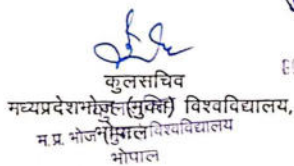 कुलसचिव
मध्यप्रदेश (मुक्त) विश्वविद्यालय,
म.प्र. भोज विश्वविद्यालय
भोपाल